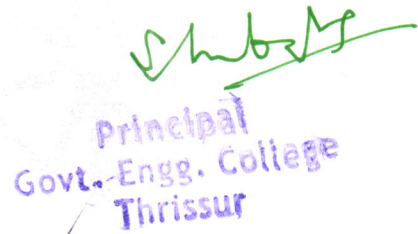 Principal
Govt. Engg. College
Thrissur